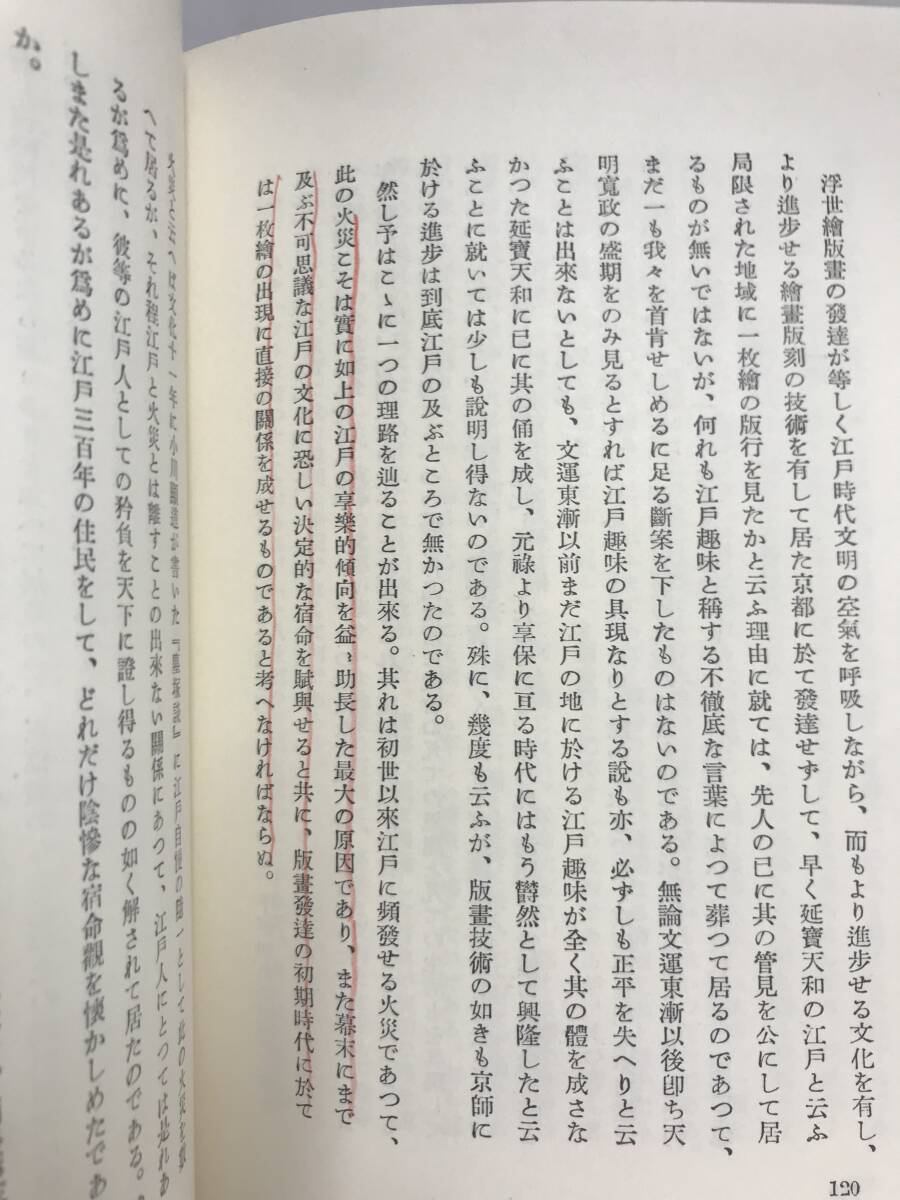 浮世繪版畫の發達が等しく江戸時代文明の空氣を呼吸しながら、而もより進步せる文化を有し、
より進步せる繪畫版刻の技術を有して居た京都に於て發達せずして、早く延寶天和の江戸と云ふ
局限された地域に一枚繪の版行を見たかと云ふ理由に就ては、先人の已に其の管見を公にして居
るものが無いではないが、何れも江戸趣味と稱する不徹底な言葉によつて葬つて居るのであつて、
まだ一も我々を首肯せしめるに足る斷案を下したものはないのである。無論文運東漸以後卽ち天
明寬政の盛期をのみ見るとすれば江戸趣味の具現なりとする説も亦、必ずしも正平を失へりと云
ふことは出來ないとしても、文運東漸以前まだ江戸の地に於ける江戸趣味が全く其の體を成さな
かつた延寶天和に已に其の俑を成し、元祿より享保に亙る時代にはもう欝然として興隆したと云
ふことに就いては少しも說明し得ないのである。殊に、幾度も云ふが、版畫技術の如きも京師に
於ける進步は到底江戸の及ぶところで無かつたのである。
然し予はこゝに一つの理路を辿ることが出來る。其れは初世以來江戸に頻發せる火災であつて、
此の火災こそは實に如上の江戸の享樂的傾向を益〻助長した最大の原因であり、また幕末にまで
及ぶ不可思議な江戸の文化に恐しい決定的な宿命を賦與せると共に、版畫發達の初期時代に於て
は一枚繪の出現に直接の關係を成せるものであると考へなければならぬ。
へば文化十一年に小川顯道が書いた『塵塚談』に江戸自慢の隨一として此の火災を
へて居るが、それ程江戸と火災とは離すことの出來ない關係にあつて、江戸人にとつては是れあ
るが爲めに、彼等の江戸人としての矜負を天下に證し得るものの如く解されて居たのである。
しまた是れあるが爲めに江戸三百年の住民をして、どれだけ陰慘な宿命觀を懷かしめたであ
か。
120